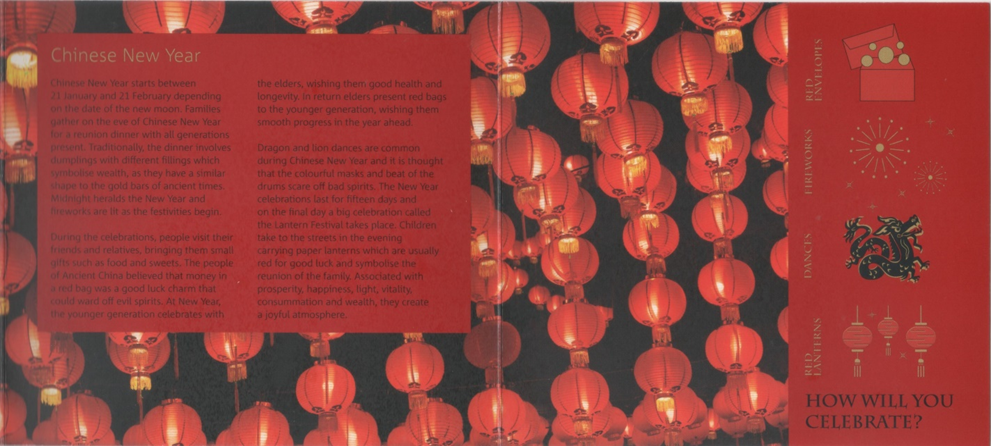 Chinese New Year
Chinese New Year starts between
21 January and 21 February depending
on the date of the new moon. Families
gather on the eve of Chinese New Year
for a reunion dinner with all generations
present. Traditionally, the dinner involves
dumplings with different fillings which
symbolise wealth, as they have a similar
shape to the gold bars of ancient times.
Midnight heralds the New Year and
fireworks are lit as the festivities begin.
During the celebrations, people visit their
friends and relatives, bringing them small
gifts such as food and sweets. The people
of Ancient China believed that money in
a red bag was a good luck charm that
could ward off evil spirits. At New Year,
the younger generation celebrates with
the elders, wishing them good health and
longevity. In return elders present red bags
to the younger generation, wishing them
smooth progress in the year ahead.
Dragon and lion dances are common
during Chinese New Year and it is thought
that the colourful masks and beat of the
drums scare off bad spirits. The New Year
celebrations last for fifteen days and
on the final day a big celebration called
the Lantern Festival takes place. Children
take to the streets in the evening
carrying paper lanterns which are usually
red for good luck and symbolise the
reunion of the family. Associated with
prosperity, happiness, light, vitality,
consummation and wealth, they create
a joyful atmosphere.
RED
ENVELOPES
FIREWORKS
DANCES
RED
LANTERNS
HOW WILL YOU
CELEBRATE?